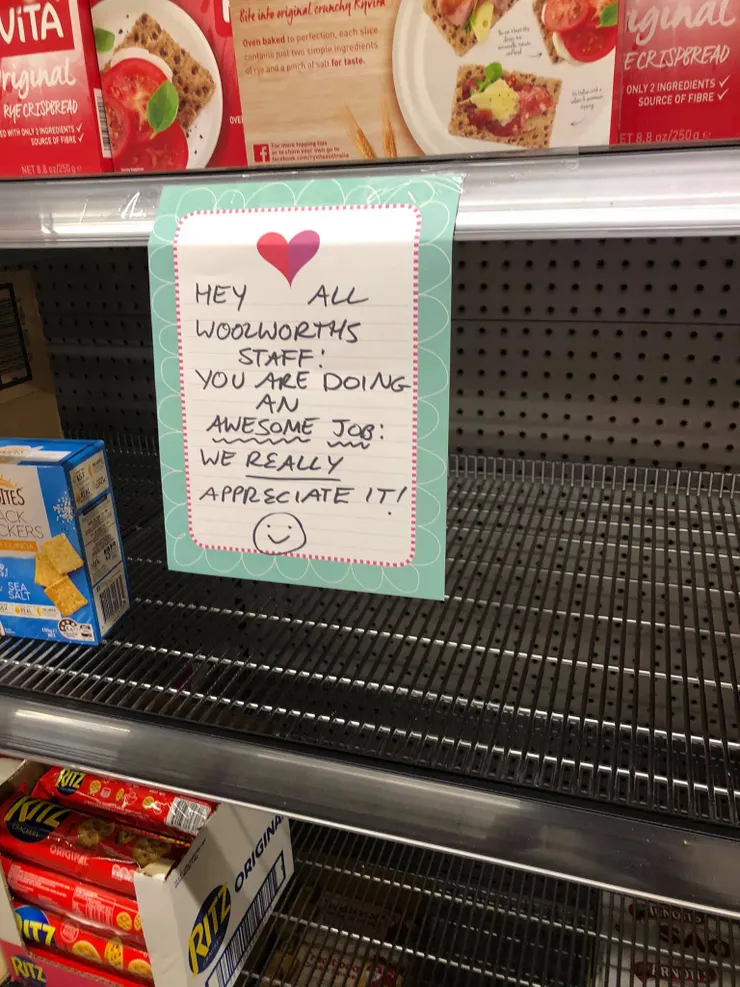 VITA
riginal
RYE CRISPBREAD
ONLY 2 INGREDIENTS ✓
SOURCE OF FIBRE ✓
NET 8.8 oz/250g e
Bite into original crunchy Ryvita
Oven baked to perfection, each slice
contains just two simple ingredients
of rye and a pinch of salt for taste.
iginal
E CRISPBREAD
ONLY 2 INGREDIENTS ✓
SOURCE OF FIBRE ✓
ET 8.8 oz/250g e
HEY ALL
WOOLWORTHS
STAFF:
YOU ARE DOING
AN
AWESOME JOB:
WE REALLY
APPRECIATE IT!
ITES
ACK
CKERS
SEA
SALT
RITZ
RITZ
ORIGINAL
ITZ
RITZ
RITZ ORIGINA
SAO